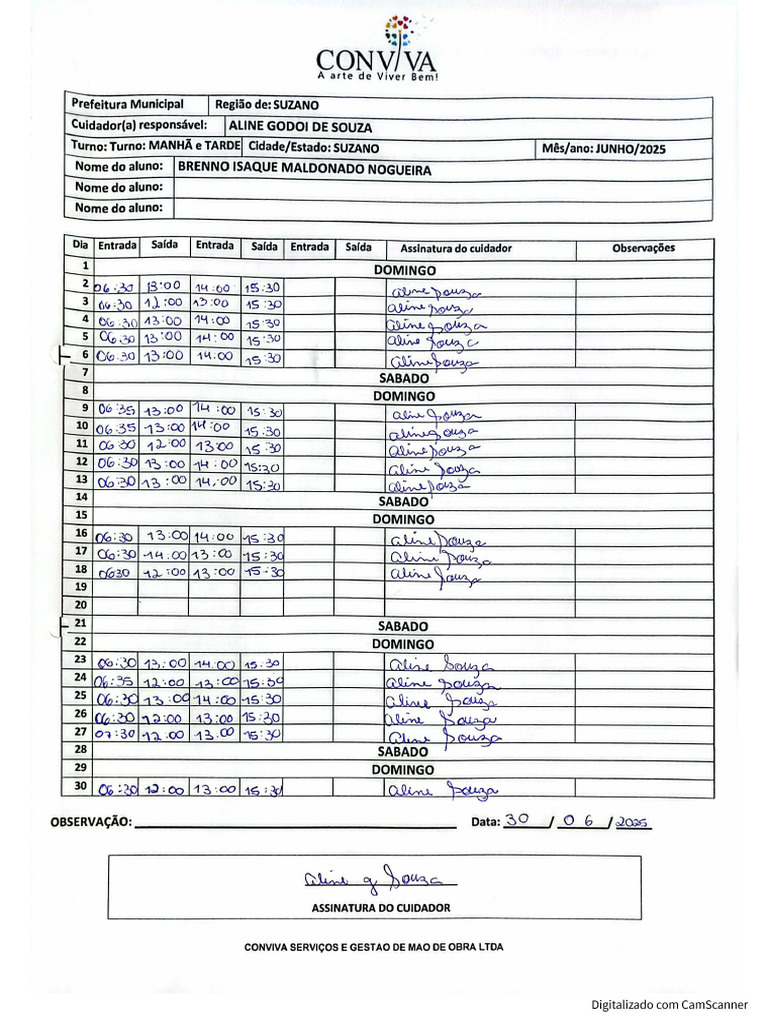 CONVIVA
A arte de Viver Bem!
Prefeitura Municipal Região de: SUZANO
Cuidador(a) responsável: ALINE GODOI DE SOUZA
Turno: Turno: MANHÃ e TARDE Cidade/Estado: SUZANO Mês/ano: JUNHO/2025
Nome do aluno: BRENNO ISAQUE MALDONADO NOGUEIRA
Nome do aluno:
Nome do aluno:
Dia Entrada Saída Entrada Saída Entrada Saída Assinatura do cuidador Observações
1 DOMINGO
2 06:30 13:00 14:00 15:30 Aline Souza
3 06:30 12:00 13:00 15:30 Aline Souza
4 06:30 13:00 14:00 15:30 Aline Souza
5 06:30 13:00 14:00 15:30 Aline Souza
6 06:30 13:00 14:00 15:30 Aline Souza
7 SABADO
8 DOMINGO
9 06:35 13:00 14:00 15:30 Aline Souza
10 06:35 13:00 14:00 15:30 Aline Souza
11 06:30 12:00 13:00 15:30 Aline Souza
12 06:30 13:00 14:00 15:30 Aline Souza
13 06:30 13:00 14:00 15:30 Aline Souza
14 SABADO
15 DOMINGO
16 06:30 13:00 14:00 15:30 Aline Souza
17 06:30 14:00 13:00 15:30 Aline Souza
18 0630 12:00 13:00 15:30 Aline Souza
19
20
21 SABADO
22 DOMINGO
23 06:30 13:00 14:00 15:30 Aline Souza
24 06:35 12:00 13:00 15:30 Aline Souza
25 06:30 13:00 14:00 15:30 Aline Souza
26 06:30 12:00 13:00 15:30 Aline Souza
27 07:30 12:00 13:00 15:30 Aline Souza
28 SABADO
29 DOMINGO
30 06:30 12:00 13:00 15:30 Aline Souza
OBSERVAÇÃO: Data: 30 / 06 / 2025
Aline g Souza
ASSINATURA DO CUIDADOR
CONVIVA SERVIÇOS E GESTAO DE MAO DE OBRA LTDA
Digitalizado com CamScanner